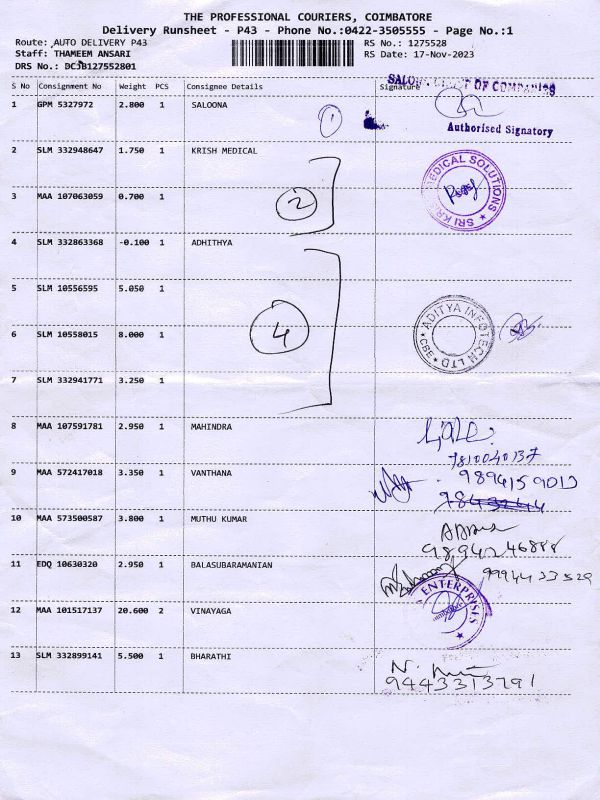 THE PROFESSIONAL COURIERS, COIMBATORE
Delivery Runsheet - P43 - Phone No.:0422-3505555 - Page No.:1
Route: AUTO DELIVERY P43
RS No.: 1275528
Staff: THAMEEM ANSARI
RS Date: 17-Nov-2023
DRS No.: DCJB127552801
S No Consignment No Weight PCS Consignee Details Signature
OF COMPANIES
1 GPM 5327972 2.800 1 SALOONA
1
Authorised Signatory
2 SLM 332948647 1.750 1 KRISH MEDICAL
MEDICAL SOLUTIONS
SRI
3 MAA 107063059 0.700 1
2
4 SLM 332863368 -0.100 1 ADHITHYA
5 SLM 10556595 5.050 1
ADITYA INFOTECH LTD
CBE
6 SLM 10558015 8.000 1
4
7 SLM 332941771 3.250 1
8 MAA 107591781 2.950 1 MAHINDRA
7810040137
9 MAA 572417018 3.350 1 VANTHANA
10 MAA 573500587 3.800 1 MUTHU KUMAR
9894246888
11 EDQ 10630320 2.950 1 BALASUBARAMANIAN
9994433529
ENTERPRISES
12 MAA 101517137 20.600 2 VINAYAGA
13 SLM 332899141 5.500 1 BHARATHI
N.
9443313791